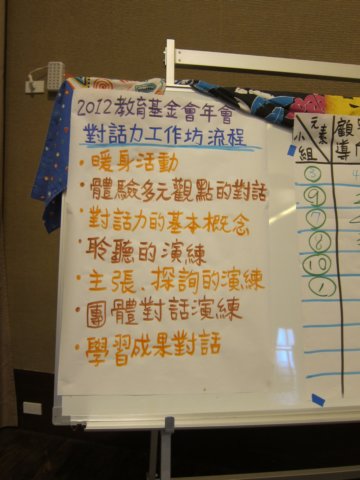 2012教育基金會年會
對話力工作坊流程
・暖身活動
・體驗多元觀點的對話
・對話力的基本概念
・聆聽的演練
・主張、探詢的演練
・團體對話演練
・學習成果對話
元素
小組
顧
導
③
⑨
⑦
⑧
⑩
①